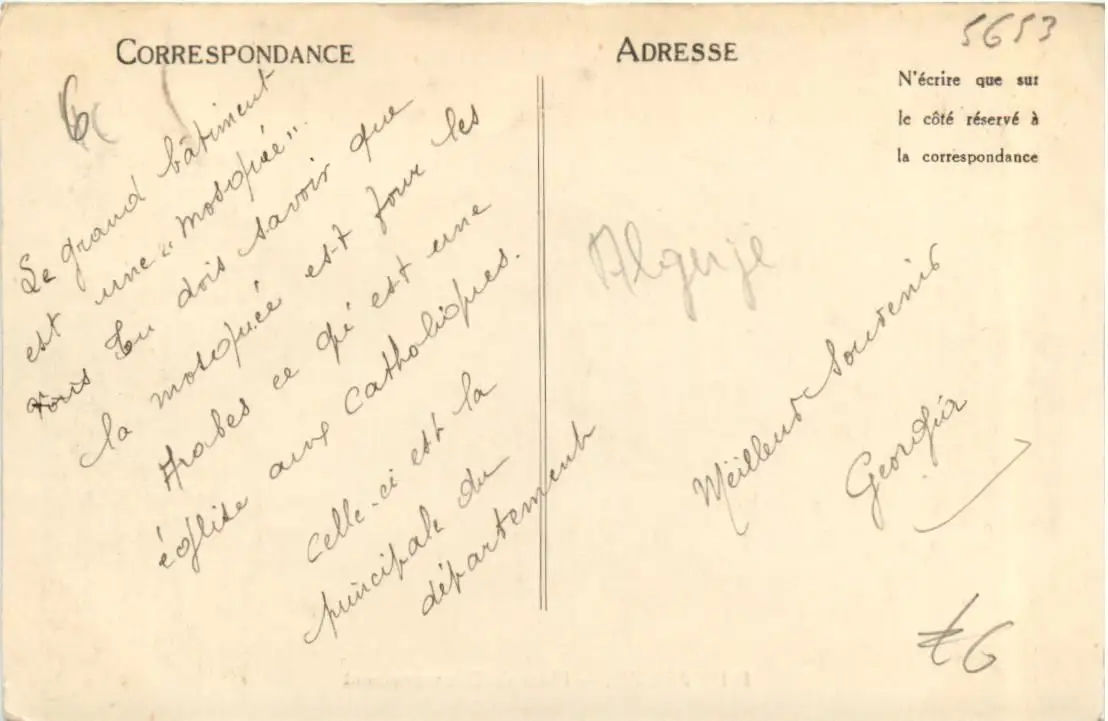 CORRESPONDANCE
6
Le grand bâtiment
est une "mosquée".
Tu dois savoir que
la mosquée est pour les
Arabes ce qui est une
église aux catholiques.
celle-ci est la
principale du
département
ADRESSE
5653
N'écrire que sur
le côté réservé à
la correspondance
Algerje
Meilleurs Souvenirs
€6